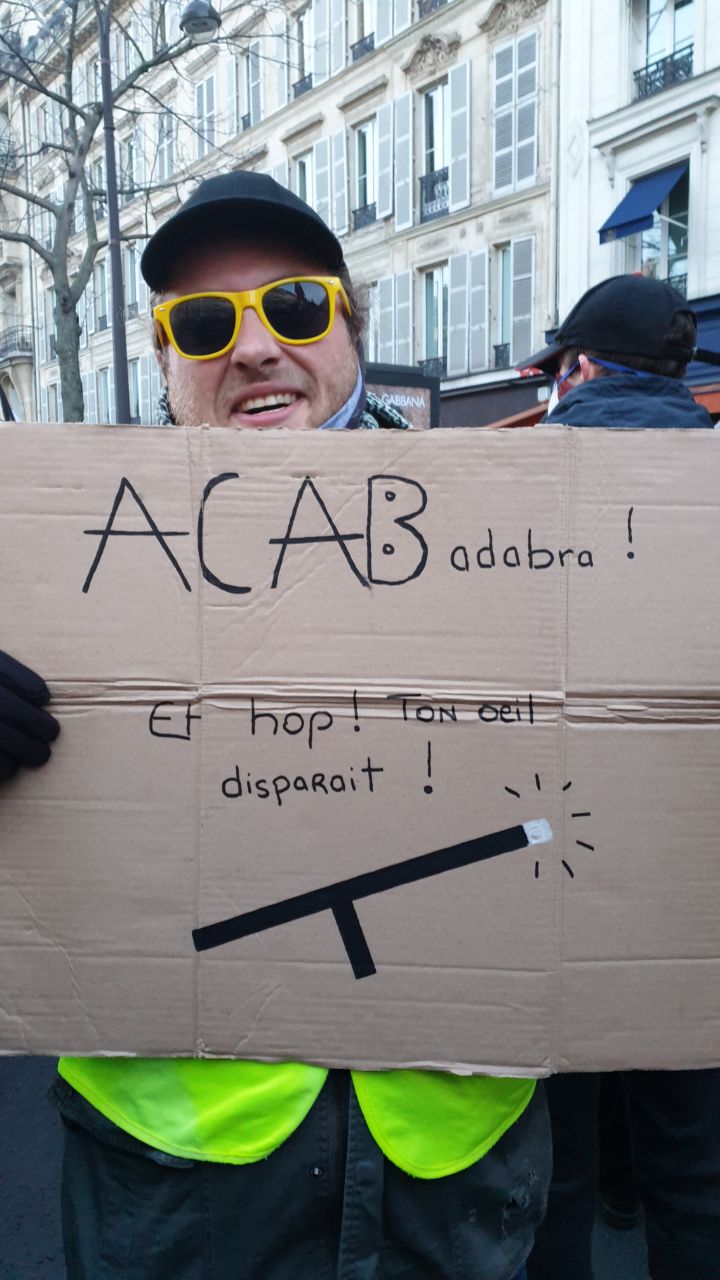 GABBANA
ACABadabra !
Et hop! Ton oeil
disparait !